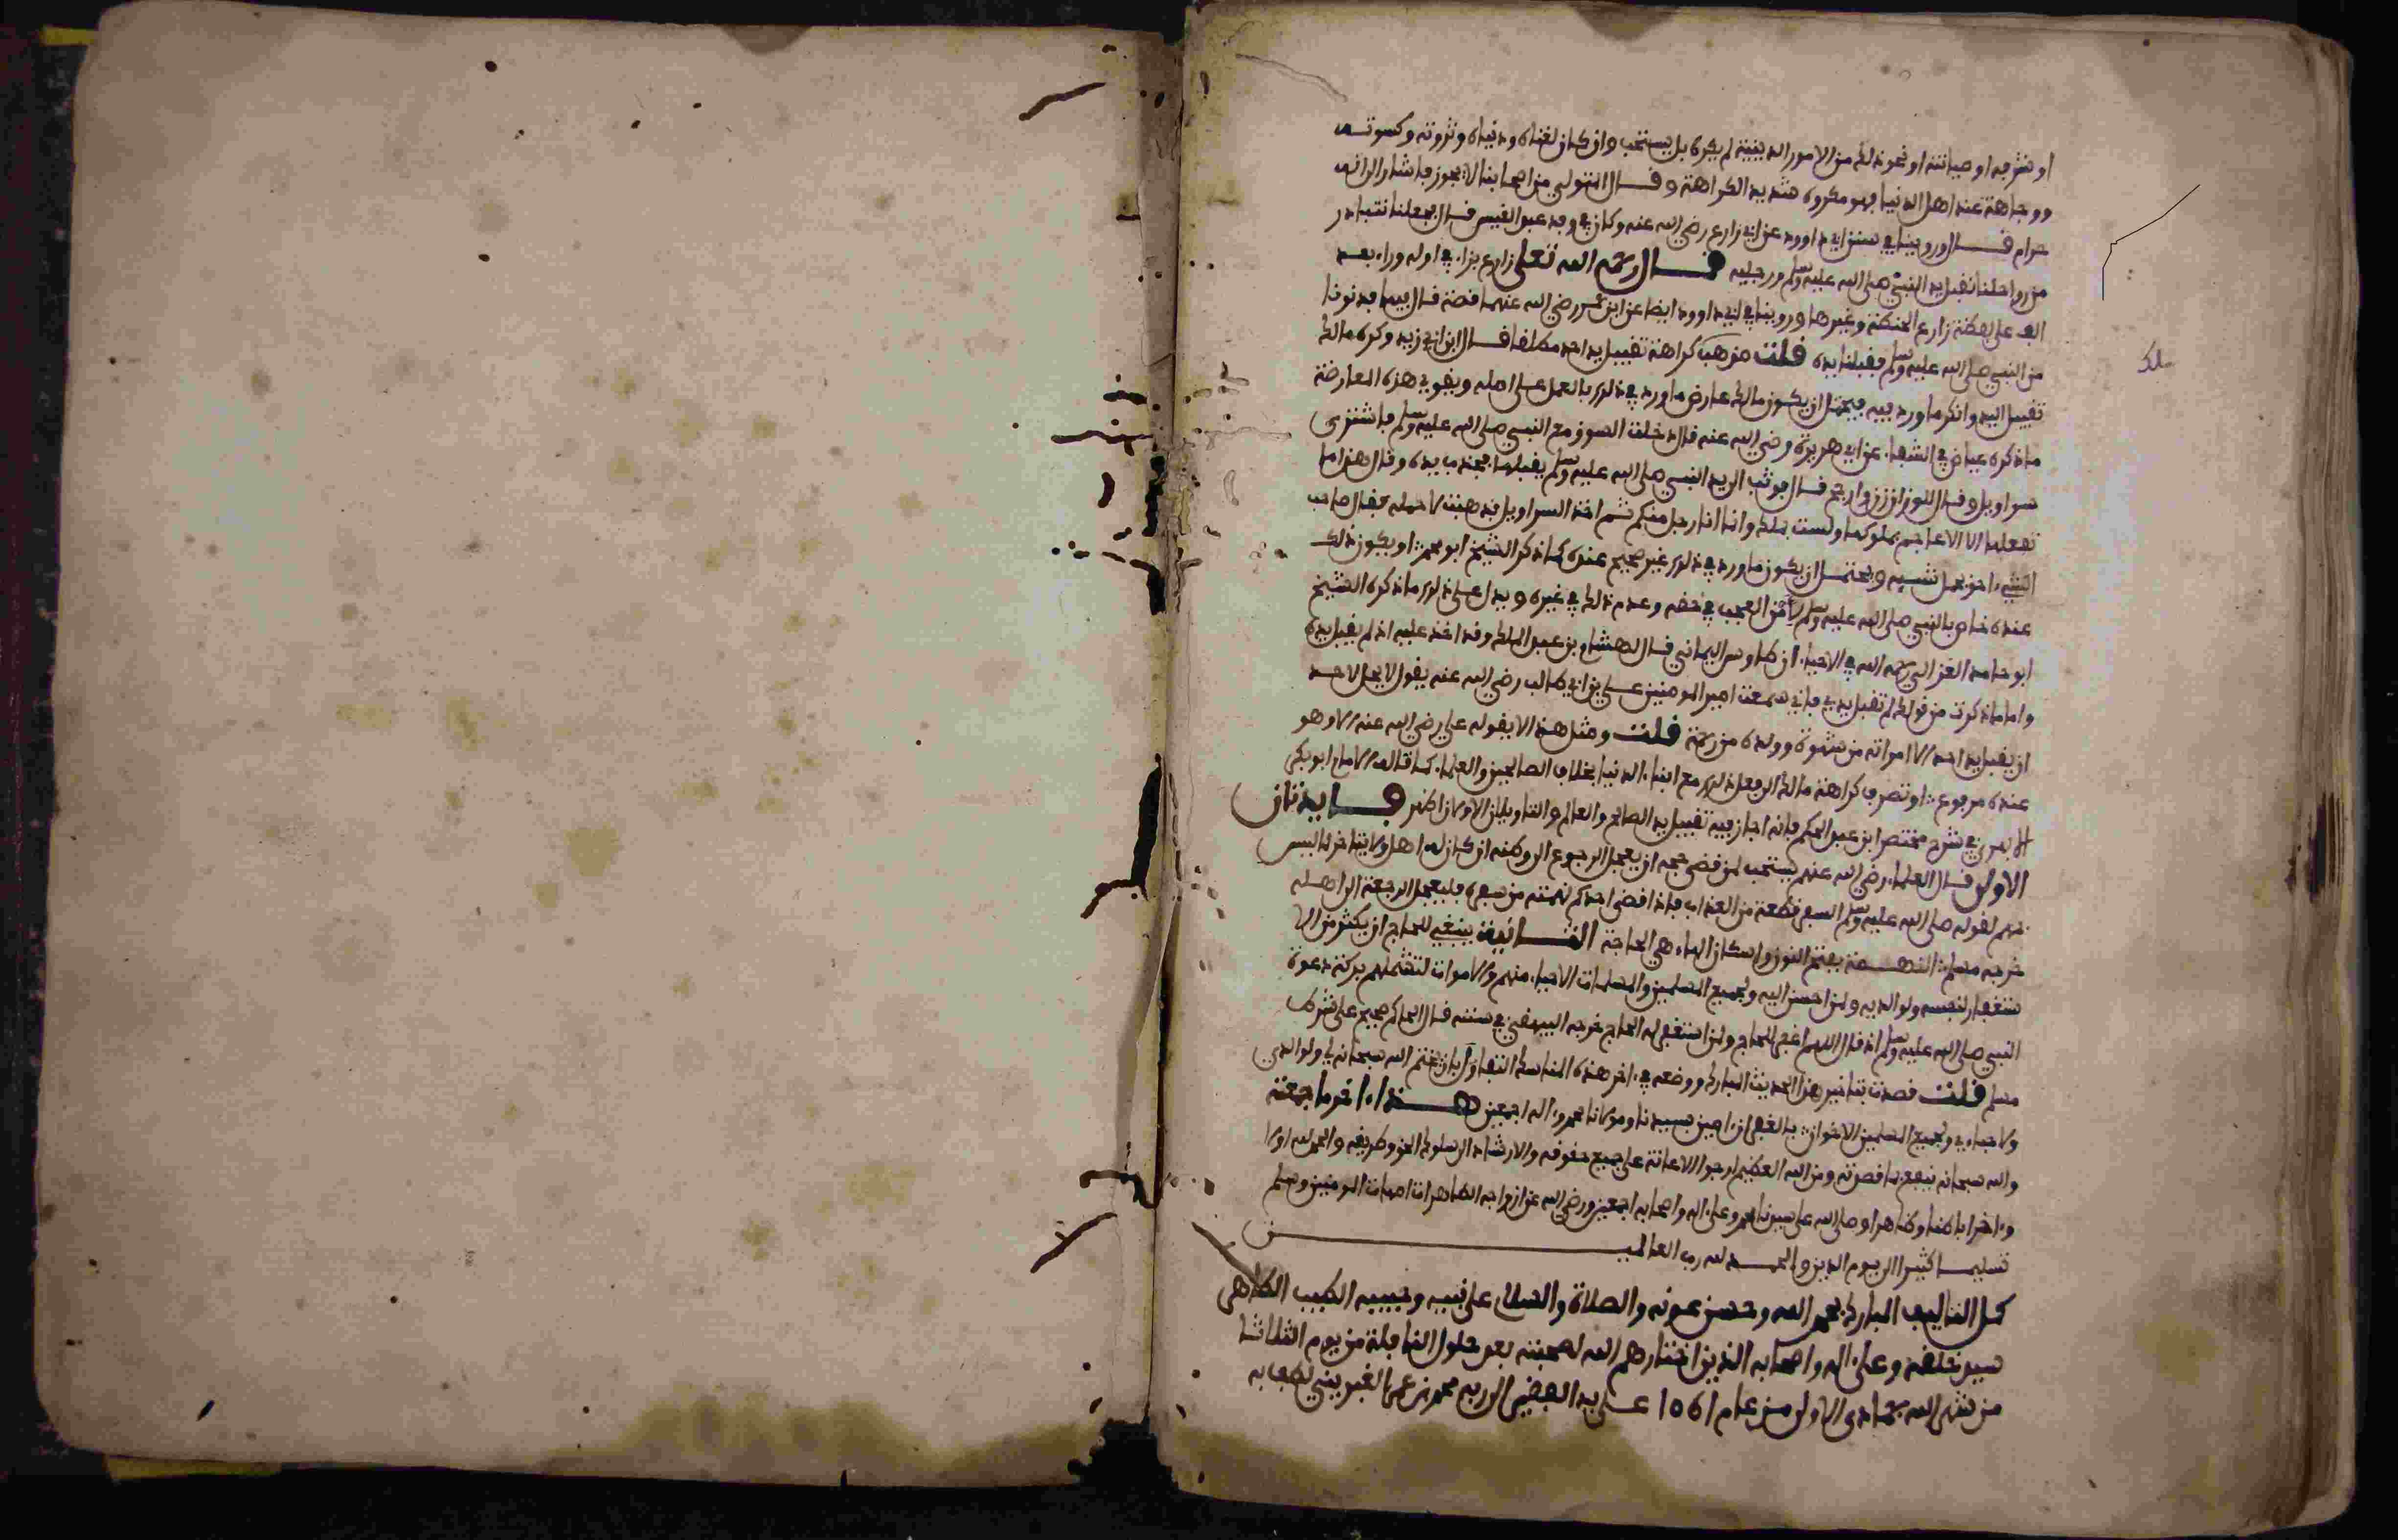 او شرفه او صيانته او نحو ذلك من الامور الدينية لم يكره بل يستحب وان كان لغناه ودنياه وثروته وشوكته
ووجاهة عند اهل الدنيا فهو مكروه شديد الكراهة وقال المتولي من اصحابنا لا يجوز فاشار الى انه
حرام قال وروينا في سنن ابي داوود عن ابي زارع رضي الله عنه وكان في وفد عبد القيس قال فجعلنا نتبادر
من رواحلنا فنقبل يد النبي صلى الله عليه وسلم ورجليه قال رحمه الله تعلى زارع بزاي في اوله وراء بعد
الف على لفظة زارع الحنطة وغيرها وروينا في ابي داوود ايضا عن ابن عمر رضي الله عنهما قصة قال فيها فدنونا
من النبي صلى الله عليه وسلم فقبلنا يده قلت مذهب كراهة تقبيل يد احد مطلقا قال ابن ابي زيد وكره مالك
تقبيل اليد وانكر ما ورد فيه فيحتمل ان يكون مالك عارض ما ورد في ذلك بالعمل على اصله ويقوي هذه المعارضة
ما ذكره عياض في الشفاء عن ابي هريرة رضي الله عنه قال دخلت السوق مع النبي صلى الله عليه وسلم فاشترى
سراويل وقال للوزان زن وارجح قال فوثب الى يد النبي صلى الله عليه وسلم يقبلها فجذب يده وقال هذا ما
تفعله الاعاجم بملوكها ولست بملك وانما انا رجل منكم ثم اخذ السراويل فذهبت لاحمله فقال صاحب
الشيء احق بحمل شيه ويحتمل ان يكون ما ورد في ذلك غير صحيح عنده كما ذكر الشيخ ابو محمد او يكون ذلك
عنده خاص بالنبي صلى الله عليه وسلم لامن العجب في حقه وعدم ذلك في غيره ويدل على ذلك ما ذكره الشيخ
ابو حامد الغزالي رحمه الله في الاحياء ان طاوس اليماني قال لهشام بن عبد الملك وقد اخذ عليه اذ لم يقبل يده
واما ما ذكرت من قولك لم تقبل يدي فاني سمعت امير المومنين علي بن ابي طالب رضي الله عنه يقول لا يحل لاحد
ان يقبل يد احد الا امراته من شهوة وولده من رحمة قلت ومثل هذا لا يقوله علي رضي الله عنه الا وهو
عنده مرفوع او تصرف كراهة مالك الى فعل ذلك مع ابناء الدنيا بخلاف الصالحين والعلماء كما قاله الامام ابو بكر
الابهري في شرح مختصر ابن عبد الحكم فانه اجاز فيه تقبيل يد الصالح والعالم والتاويلان الاولان اظهر فايدتان
الاولى قال العلماء رضي الله عنهم يستحب لمن قضى حجه ان يعجل الرجوع الى وطنه ان كان له اهل ولا يتاخر لا ليس
منهم لقوله صلى الله عليه وسلم السفر قطعة من العذاب فاذا قضى احدكم نهمته من سفره فليعجل الرجعة الى اهله
خرجه مسلم النهمة بفتح النون واسكان الهاء هي الحاجة الثانية ينبغي للحاج ان يكثر من الا
ستغفار لنفسه ولوالديه ولمن احسن اليه ولجميع المسلمين والمسلمات الاحياء منهم والاموات لتشملهم بركة دعوة
النبي صلى الله عليه وسلم اذ قال اللهم اغفر للحاج ولمن استغفر له الحاج خرجه البيهقي في سننه قال الحاكم صحيح على شرط
مسلم قلت قصدت بتاخير هذا الحديث المبارك ووضعه في اخر هذه المناسك التفاؤل بان يختم الله سبحانه لي ولوالدي
ولاحباءي ولجميع المسلمين الاخوان بالغفران امين بسيدنا ومولانا محمد واله اجمعين هذا اخر ما جمعته
والله سبحانه ينفع بما قصدته ومن الله العظيم ارجو الاعانة على جميع حقوقه والارشاد الى سلوك الحق وطريقه والحمد لله اولا
واخرا باطنا وظاهرا وصلى الله على سيدنا محمد وعلى اله واصحابه اجمعين ورضي الله عن ازواجه الطاهرات امهات المومنين وسلم
تسليما كثيرا الى يوم الدين والحمد لله رب العالمين
كمل التاليف المبارك بحمد الله وحسن عونه والصلاة والسلام على نبيه وحبيبه الطيب الطاهر
سيد خلقه وعلى اله واصحابه الذين اختارهم الله لصحبته بعد حلول النافلة من يوم الثلاثا
من شهر الله جمادى الاولى من عام 1061 على يد الفقير الى ربه محمد بن علي الغبريني لطف به
ملك